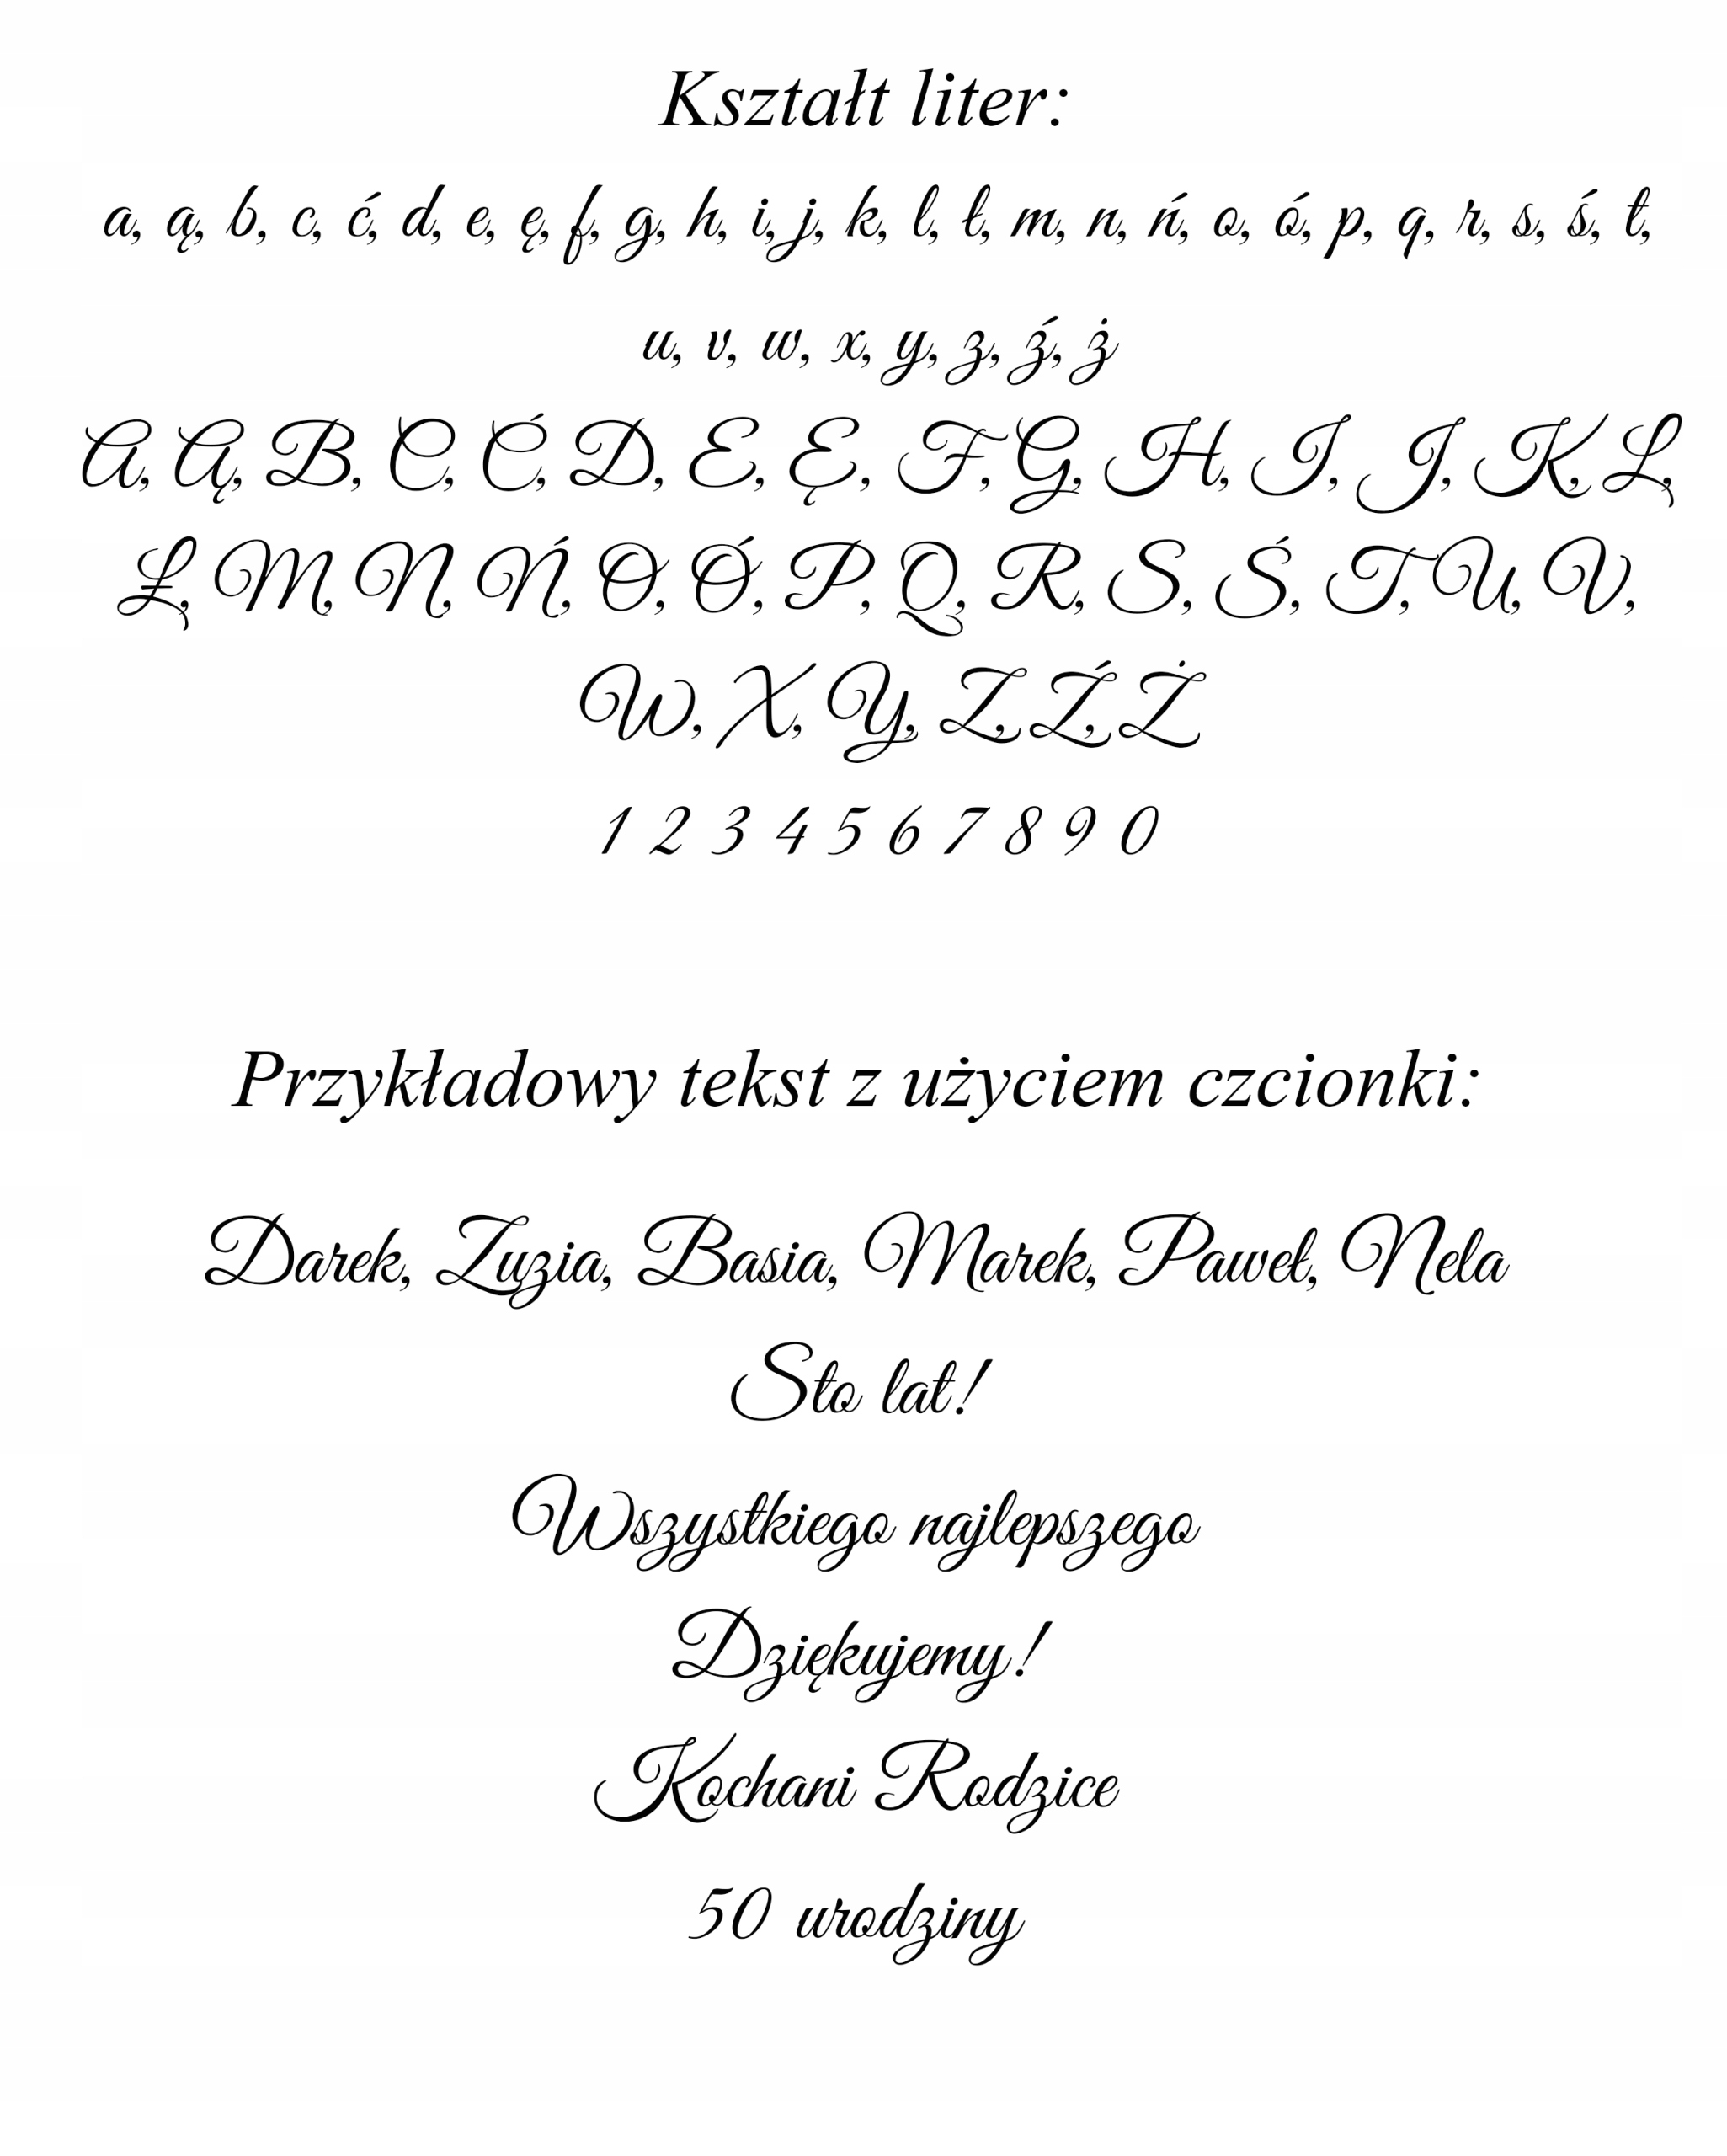 Kształt liter:
a, ą, b, c, ć, d, e, ę, f, g, h, i, j, k, l, ł, m, n, ń, o, ó, p, q, r, s, ś, t,
u, v, w, x, y, z, ź, ż
A, Ą, B, C, Ć, D, E, Ę, F, G, H, I, J, K, L,
Ł, M, N, Ń, O, Ó, P, Q, R, S, Ś, T, U, V,
W, X, Y, Z, Ź, Ż
1 2 3 4 5 6 7 8 9 0
Przykładowy tekst z użyciem czcionki:
Darek, Zuzia, Basia, Marek, Paweł, Nela
Sto lat!
Wszystkiego najlepszego
Dziękujemy!
Kochani Rodzice
50 urodziny